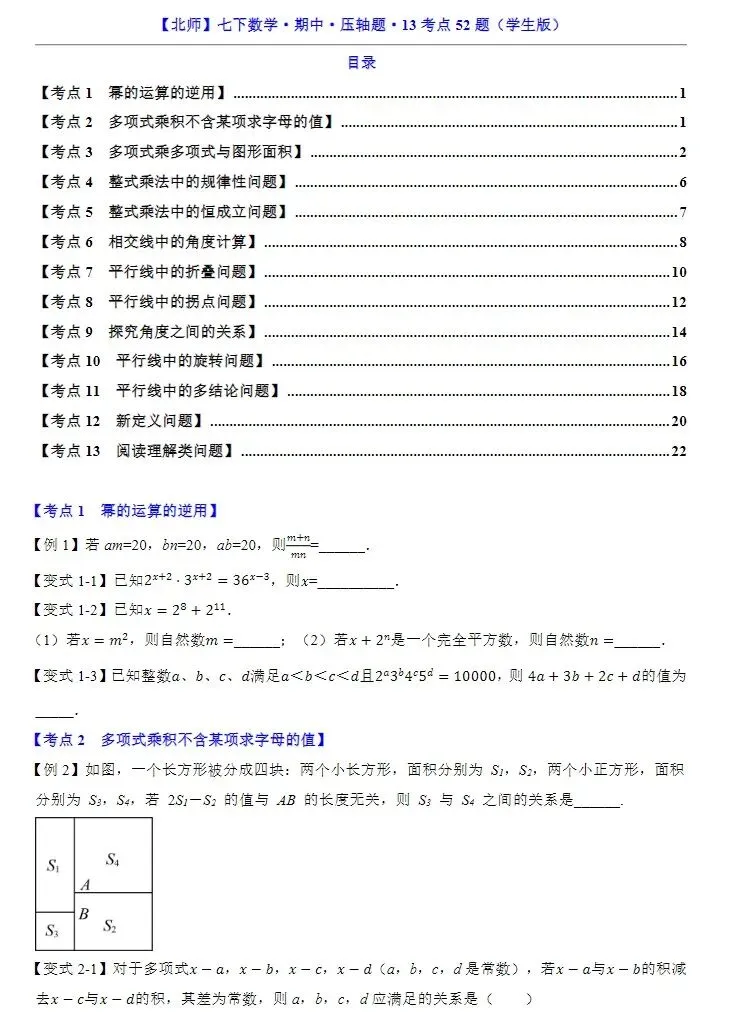 【北师】七下数学·期中·压轴题·13考点52题（学生版）
目录
【考点1 幂的运算的逆用】1
【考点2 多项式乘积不含某项求字母的值】1
【考点3 多项式乘多项式与图形面积】2
【考点4 整式乘法中的规律性问题】6
【考点5 整式乘法中的恒成立问题】7
【考点6 相交线中的角度计算】8
【考点7 平行线中的折叠问题】10
【考点8 平行线中的拐点问题】12
【考点9 探究角度之间的关系】14
【考点10 平行线中的旋转问题】16
【考点11 平行线中的多结论问题】18
【考点12 新定义问题】20
【考点13 阅读理解类问题】22
【考点1 幂的运算的逆用】
【例1】若am=20，bn=20，ab=20，则\frac{m+n}{mn}=______.
【变式1-1】已知2^{x+2}·3^{x+2}=36^{x-3}，则x=__________.
【变式1-2】已知x=2^8+2^{11}.
（1）若x=m^2，则自然数m=______；（2）若x+2^n是一个完全平方数，则自然数n=______.
【变式1-3】已知整数a、b、c、d满足a＜b＜c＜d且2^a3^b4^c5^d=10000，则4a+3b+2c+d的值为
_____.
【考点2 多项式乘积不含某项求字母的值】
【例2】如图，一个长方形被分成四块：两个小长方形，面积分别为 S₁，S₂，两个小正方形，面积
分别为 S₃，S₄，若 2S₁－S₂ 的值与 AB 的长度无关，则 S₃ 与 S₄ 之间的关系是______.
S₁
S₄
A
B
S₂
S₃
【变式2-1】对于多项式x－a，x－b，x－c，x－d（a，b，c，d是常数），若x－a与x－b的积减
去x－c与x－d的积，其差为常数，则a，b，c，d应满足的关系是（ ）